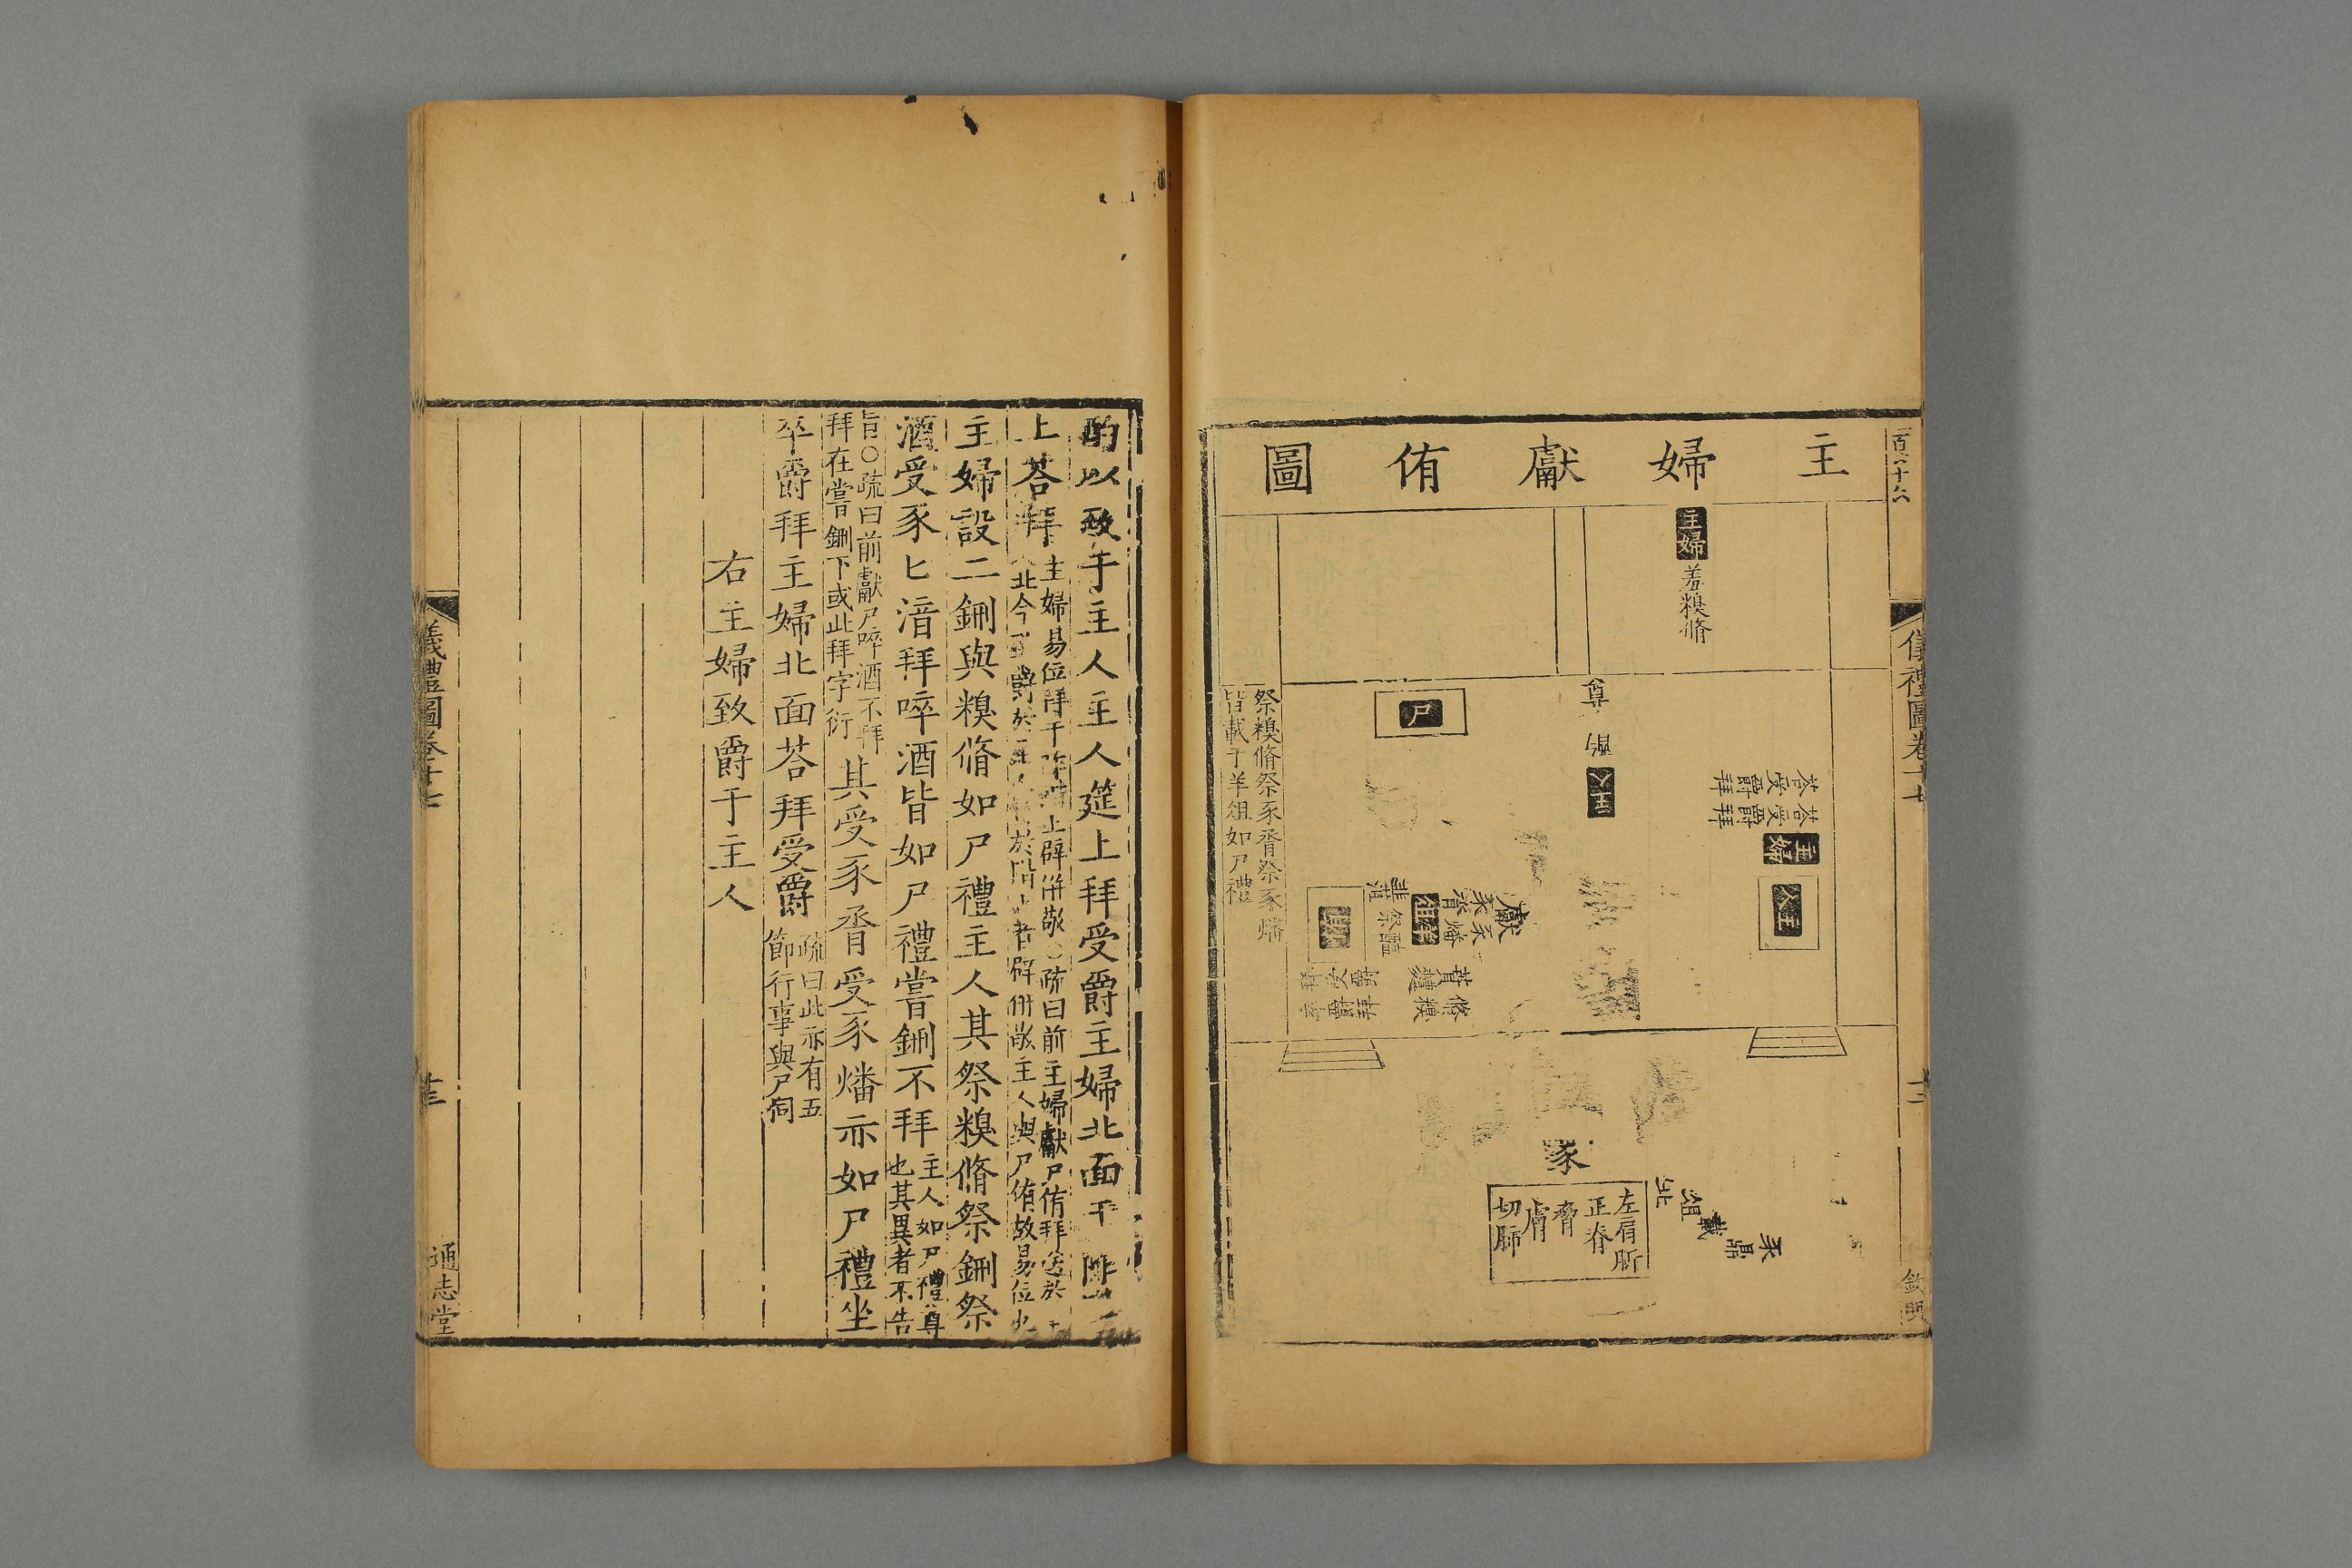 主婦獻侑圖
主婦
羞糗脩
尸
尊
主人
荅受爵拜
荅受爵拜
主婦
主人
祭糗脩祭豕脀祭豕燔
皆載于羊俎如尸禮
獻
豕燔
豕脀
羊俎
祭
韭菹
醢
糗脩
豕
左肩䏑
正脊
脅
膚
切肺
豕鼎
載
俎
北
儀禮圖卷十七
酌以致于主人主人筵上拜受爵主婦北面于阼
上荅拜
主婦易位拜于阼
上辟併敬○疏曰前主婦獻尸侑拜送於
北今
爵於主人
者辟併敬主人與尸侑故易位
主婦設二鉶與糗脩如尸禮主人其祭糗脩祭鉶祭
酒受豕匕湆拜啐酒皆如尸禮嘗鉶不拜
主人如尸禮尊
也其異者不告
旨○疏曰前獻尸啐酒不拜
拜在嘗鉶下或此拜字衍
其受豕脀受豕燔亦如尸禮坐
卒爵拜主婦北面荅拜受爵
疏曰此亦有五
節行事與尸侑
右主婦致爵于主人
儀禮圖卷十七
通志堂